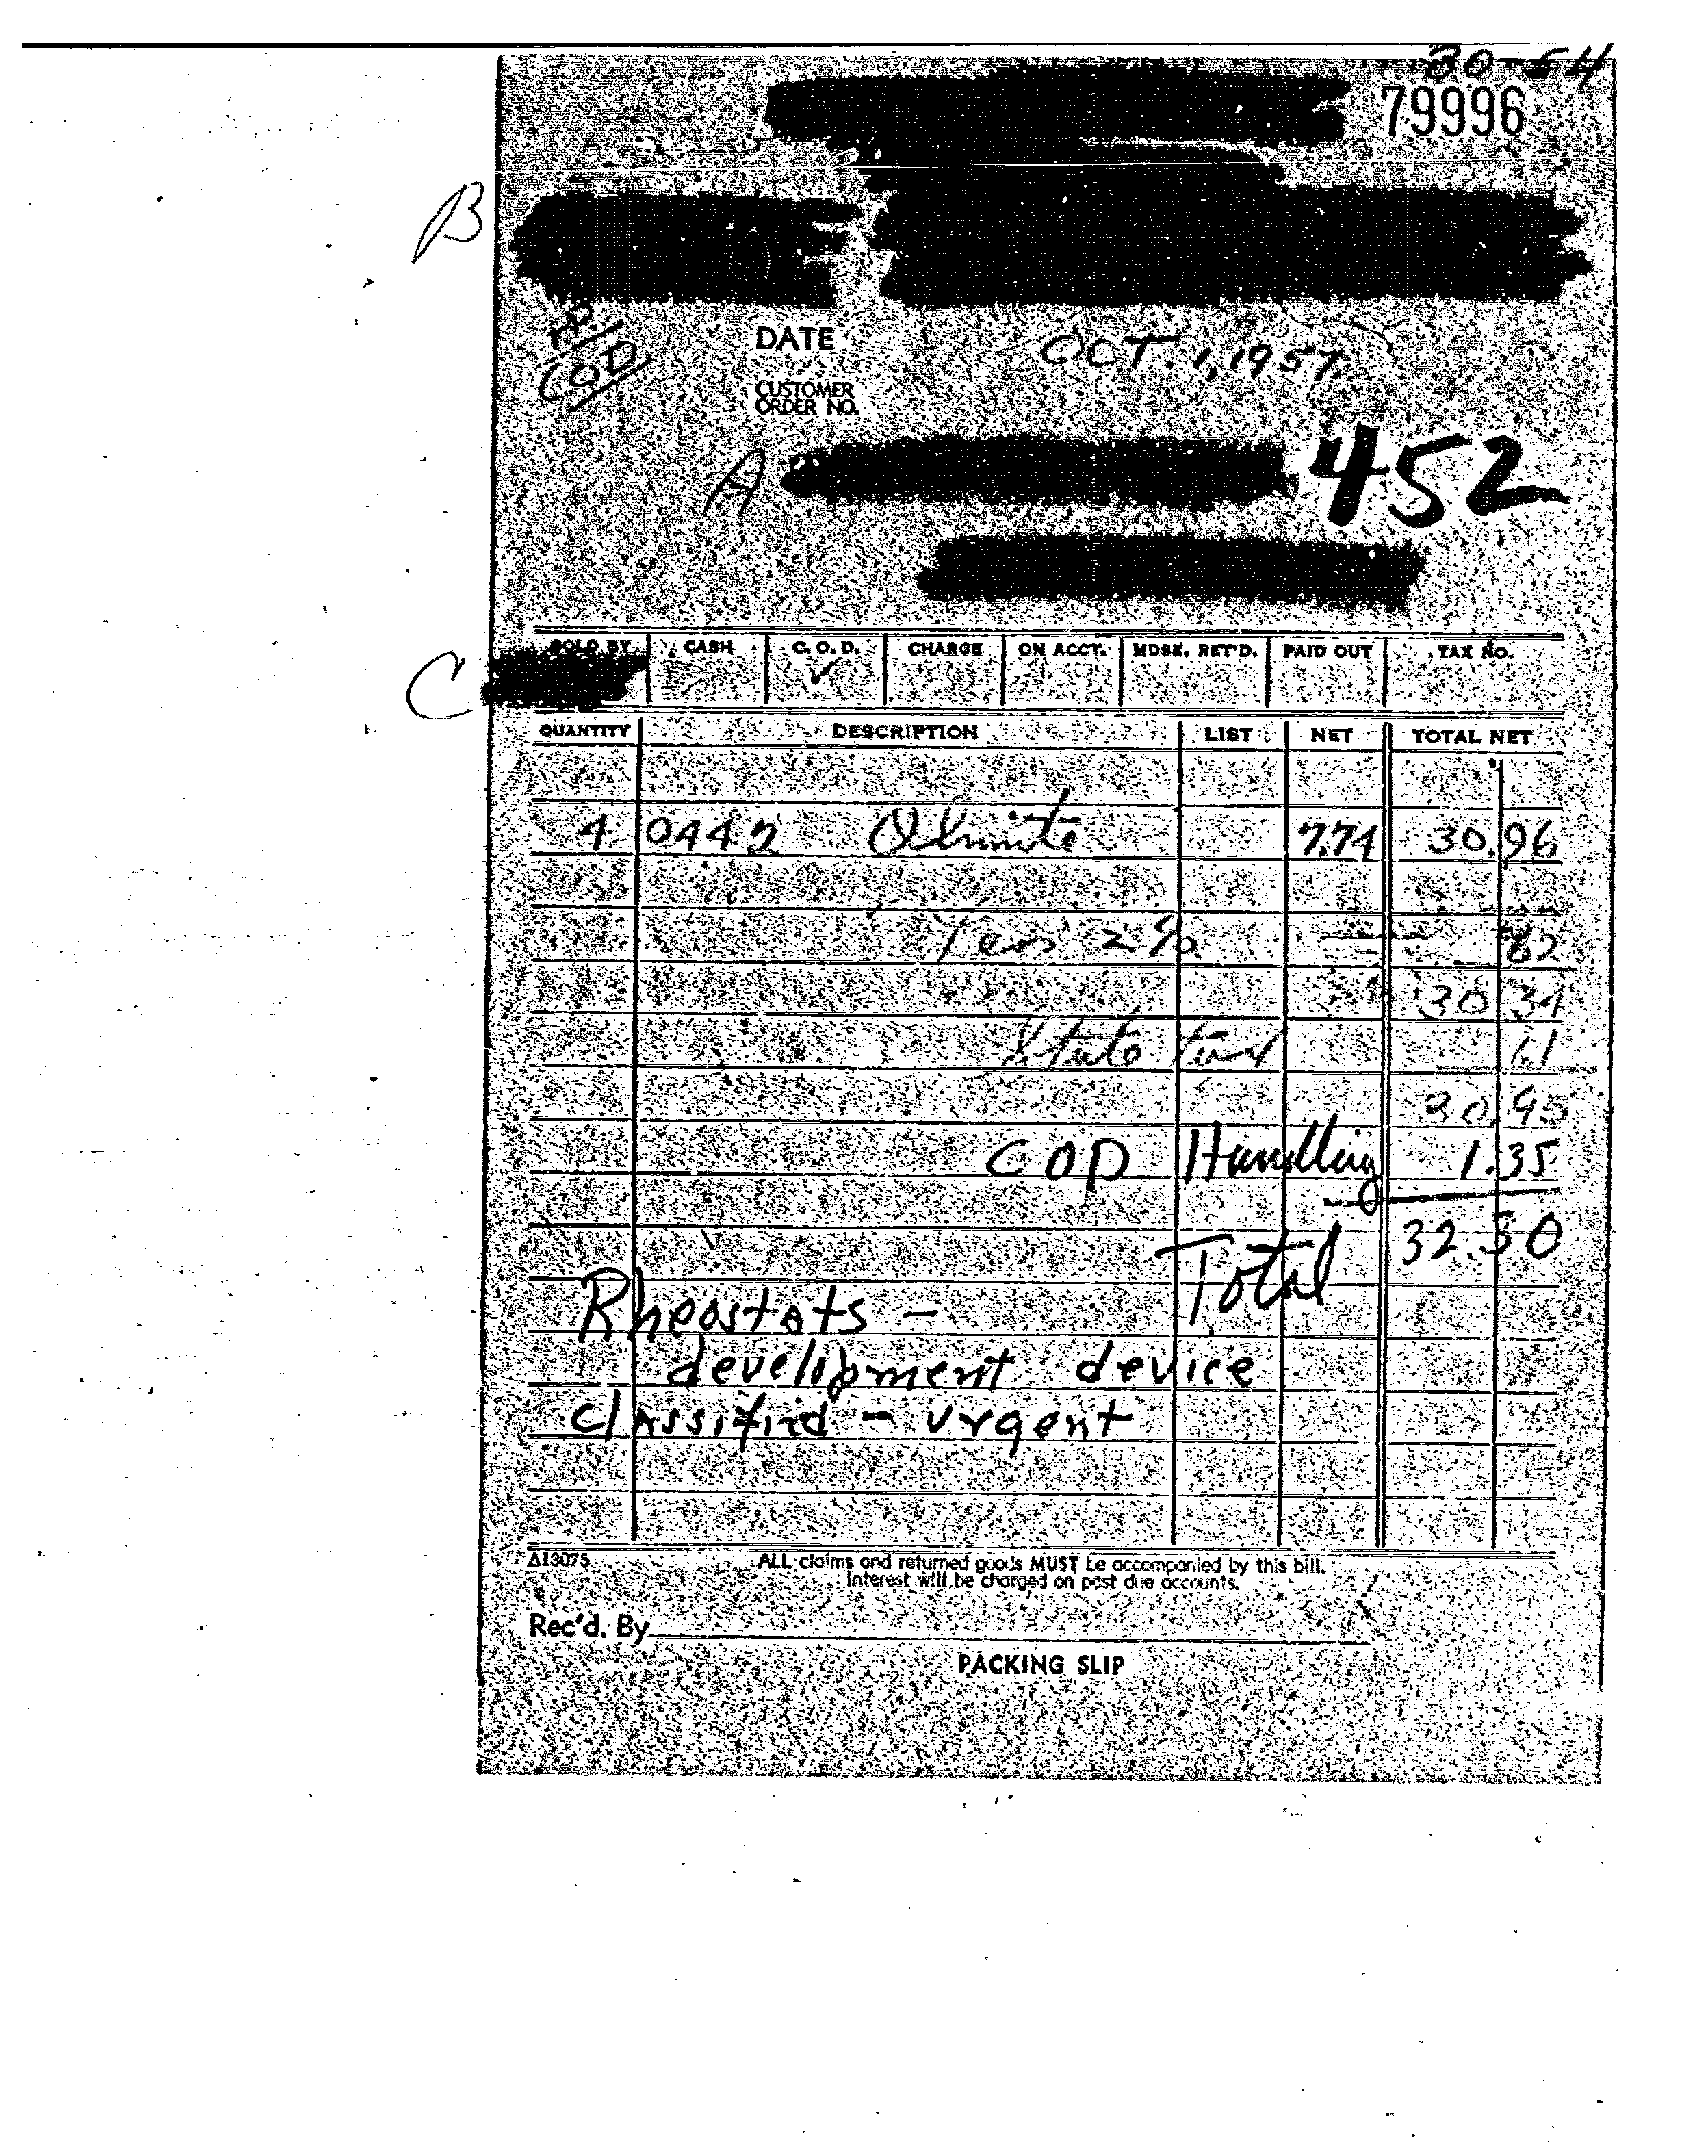 30-54
79996
B
COD
DATE OCT. 1, 1957
CUSTOMER
ORDER NO.
A 452
SOLD BY CASH C. O. D. CHARGE ON ACCT. MDSE. RET'D. PAID OUT TAX NO.
C ✓
QUANTITY DESCRIPTION LIST NET TOTAL NET
4 0442 Ohmite 7.74 30.96
Less 2% 62
30 34
State tax 61
30.95
COD Handling 1.35
Total 32.30
Rheostats -
development device
classified - urgent
A13075 ALL claims and returned goods MUST be accompanied by this bill.
Interest will be charged on past due accounts.
Rec'd. By
PACKING SLIP